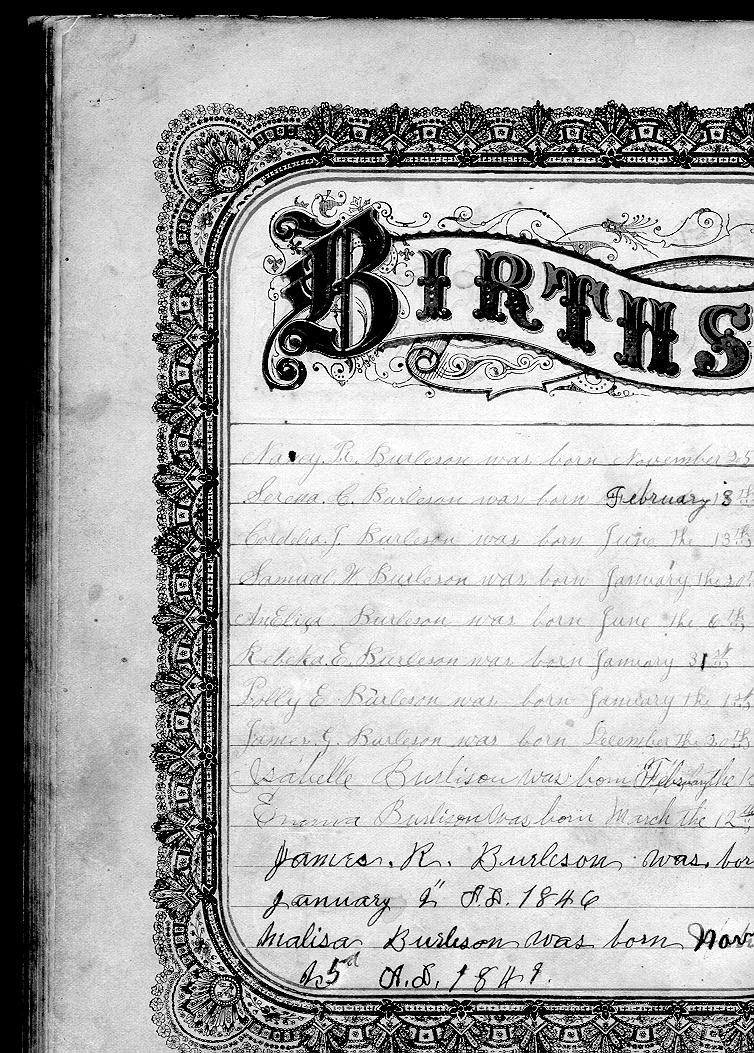 BIRTHS
Nancy R. Burleson was born November 25
Serena. C. Burleson was born February 3
Cordelia J. Burleson was born June the 13th
Samual W. Burleson was born January the 20th
AnEliza Burleson was born June the 6th
Rebeka E. Burleson was born January 31st
Polly E. Burleson was born January the 1st
James. G. Burleson was born December the 20th
Isabelle Burlison was born the
Emma Burlison was born March the 12th
James. R. Burleson was. bor
January A.D. 1846
Malisa Burleson was born Nov
A.D. 1849.